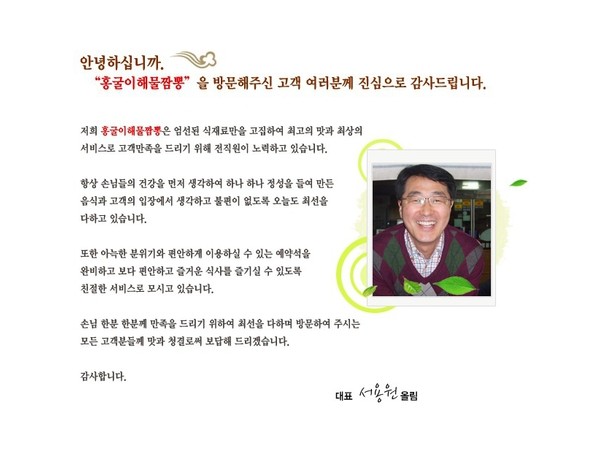 안녕하십니까.
“홍굴이해물짬뽕” 을 방문해주신 고객 여러분께 진심으로 감사드립니다.
저희 홍굴이해물짬뽕은 엄선된 식재료만을 고집하여 최고의 맛과 최상의
서비스로 고객만족을 드리기 위해 전직원이 노력하고 있습니다.
항상 손님들의 건강을 먼저 생각하여 하나 하나 정성을 들여 만든
음식과 고객의 입장에서 생각하고 불편이 없도록 오늘도 최선을
다하고 있습니다.
또한 아늑한 분위기와 편안하게 이용하실 수 있는 예약석을
완비하고 보다 편안하고 즐거운 식사를 즐기실 수 있도록
친절한 서비스로 모시고 있습니다.
손님 한분 한분께 만족을 드리기 위하여 최선을 다하며 방문하여 주시는
모든 고객분들께 맛과 청결로써 보답해 드리겠습니다.
감사합니다.
대표 서용원 올림